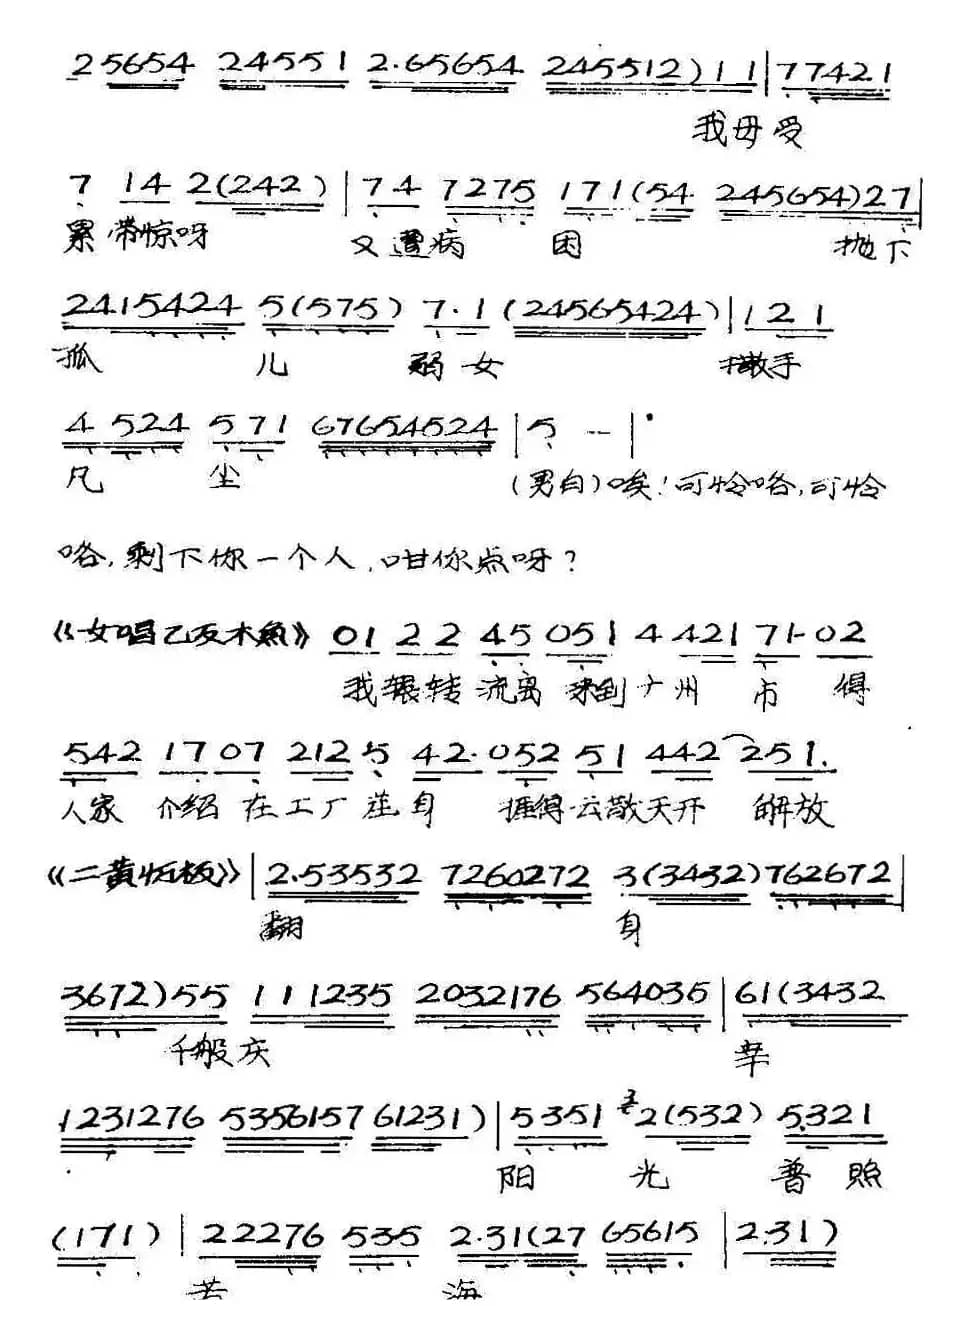 25654 24551 2.65654 245512)11|77421
我母受
7 14 2(242)|74 7275 171(54 245654)27|
累带惊呀 又遭病 困 抛下
2415424 5(575) 7.1(24565424)|121
孤 儿 弱女 撒手
4 524 571 67654524|5 —|
凡 尘 (男白)唉!可怜咯,可怜
咯,剩下你一个人,咁你点呀?
《女唱乙反木魚》01 22 45 051 4 421 71-02
我辗转流离来到广州 市 得
542 1707 212 5 42. 052 51 442 251.
人家 介绍在工厂 身 捱得云散天开 解放
《二黄板》|2.53532 7260272 3(3432)762672|
翻 身
3672)55 111235 2032176 564035|61(3432
千般庆 幸
1231276 5356157 61231)|5351 3 2(532) 5.321
阳 光 普照
(171)|22276 535 2.31(27 65615|2.31)
苦 海